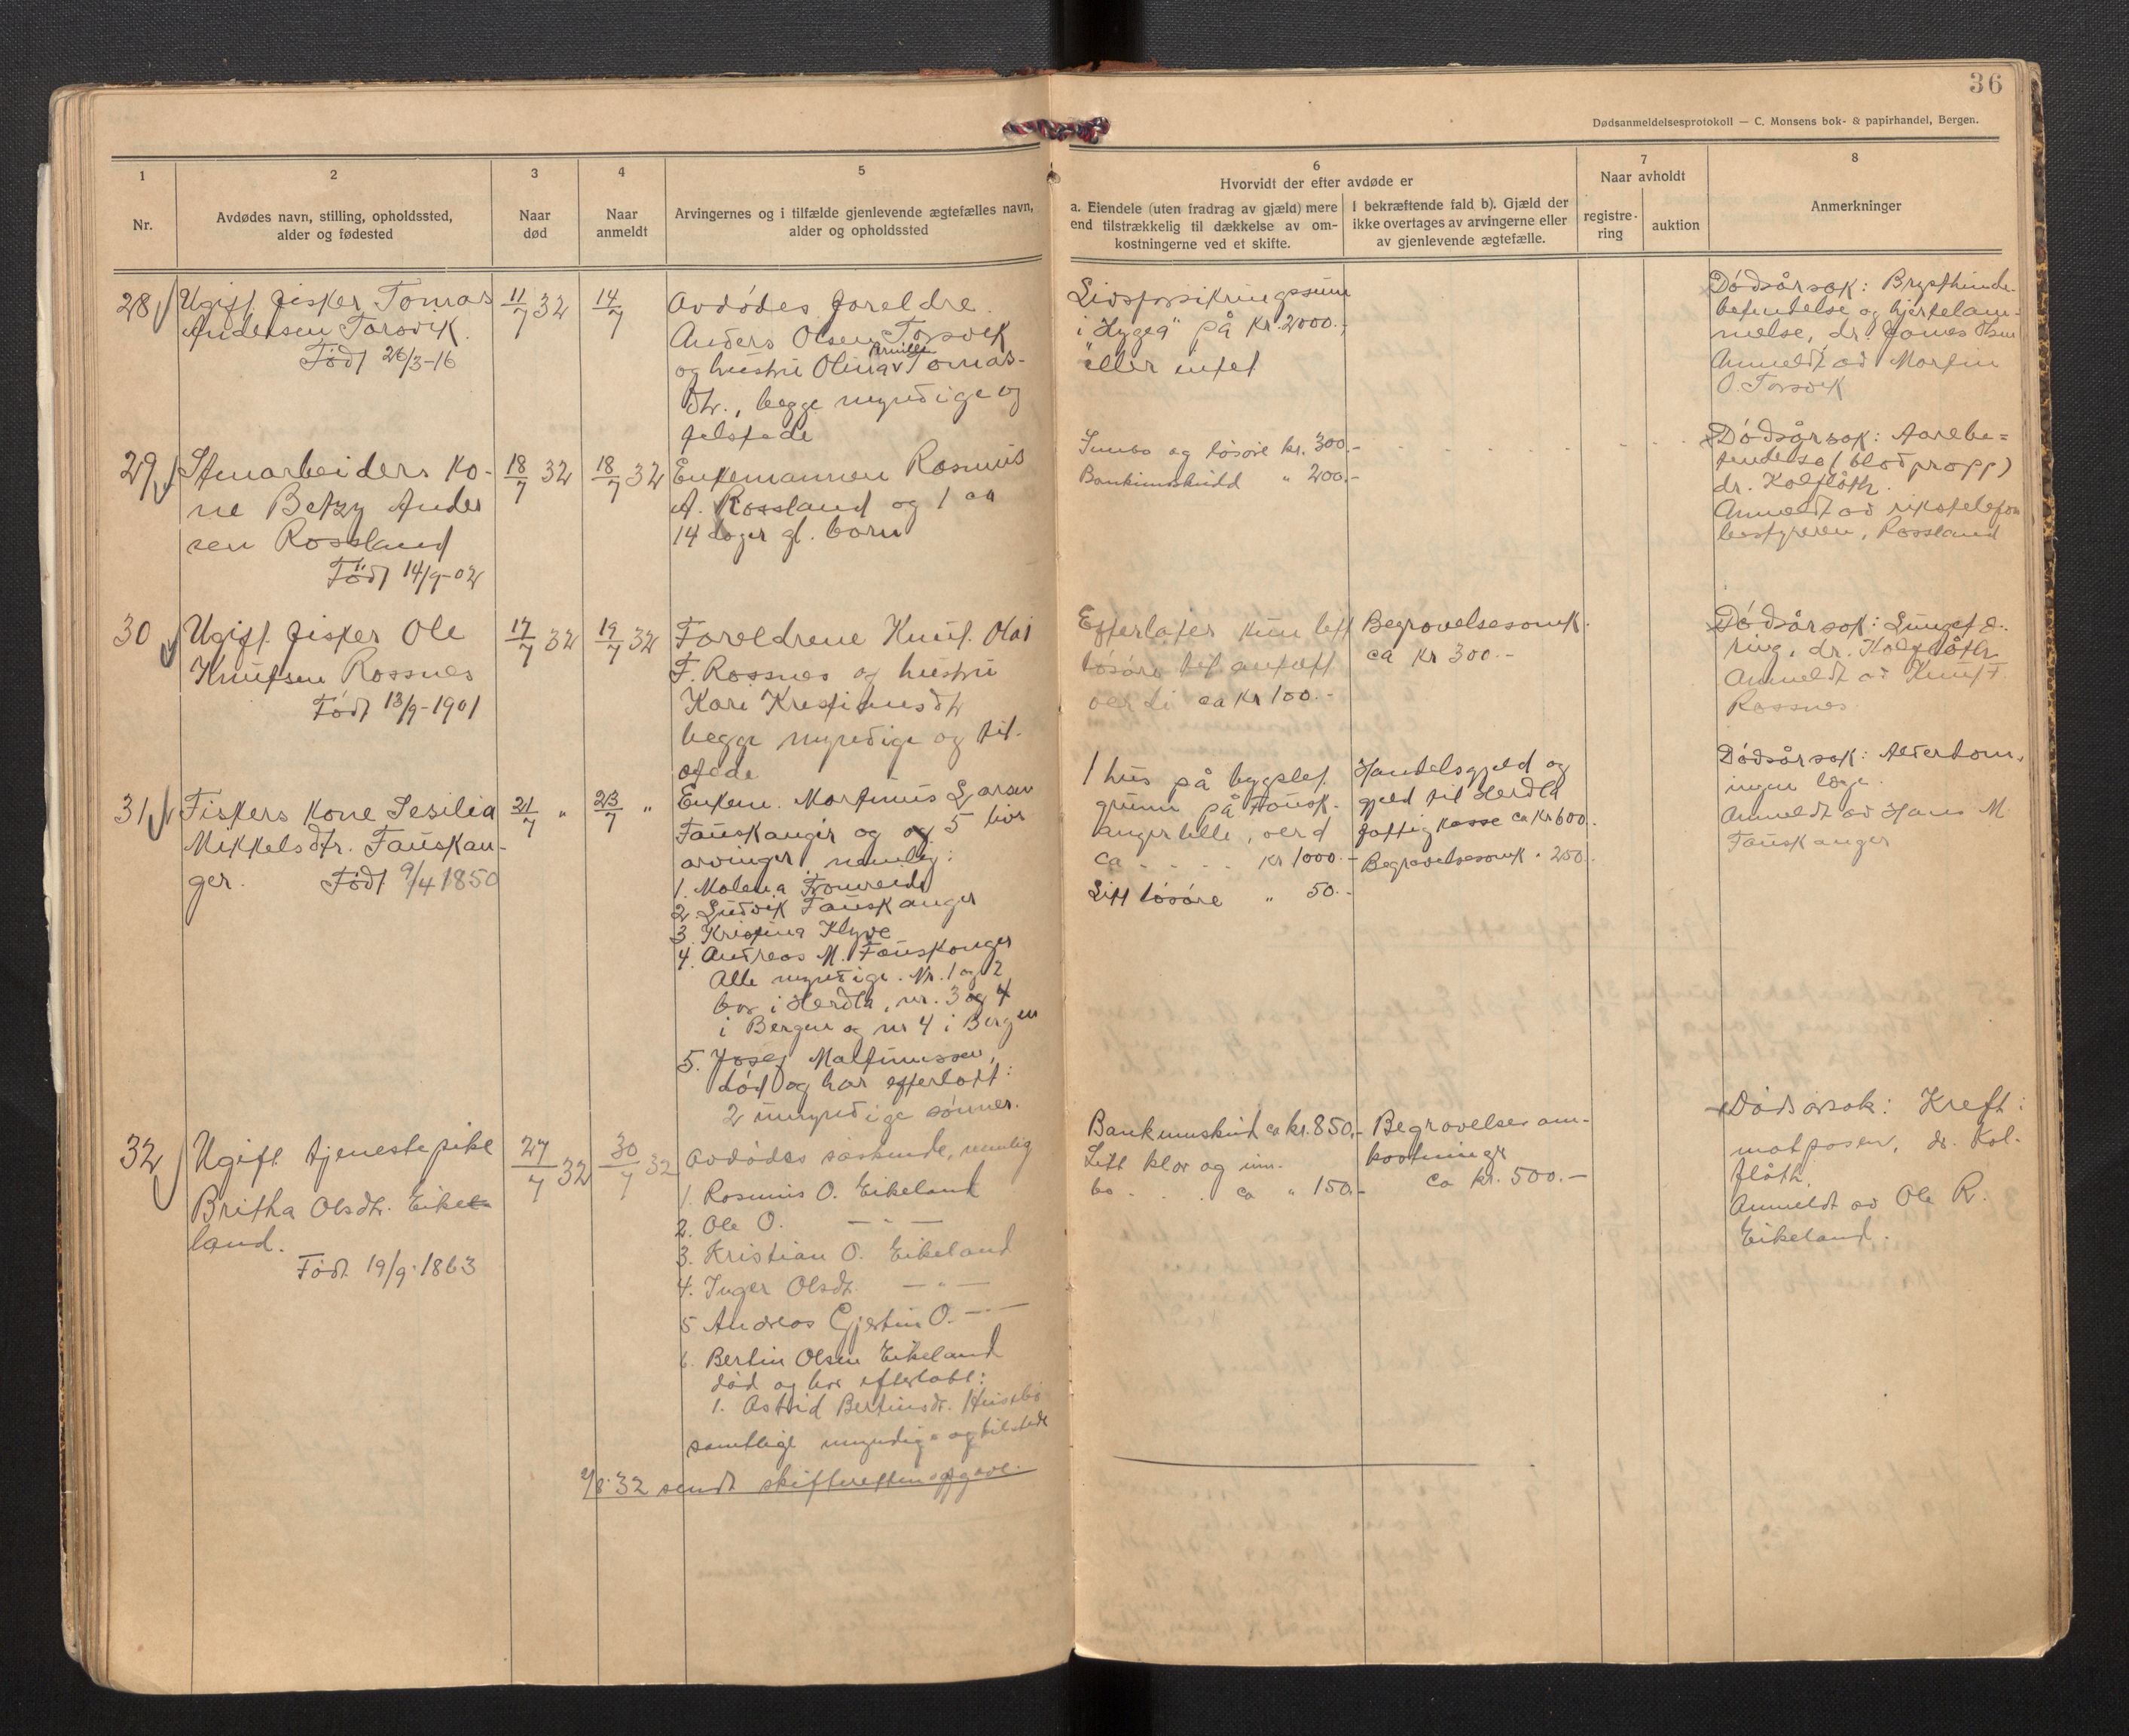 36
Dødsanmeldelsesprotokoll — C. Monsens bok- & papirhandel, Bergen.
1
Nr.
2
Avdødes navn, stilling, opholdssted,
alder og fødested
3
Naar
død
4
Naar
anmeldt
5
Arvingernes og i tilfælde gjenlevende ægtefælles navn,
alder og opholdssted
6
Hvorvidt der efter avdøde er
a. Eiendele (uten fradrag av gjæld) mere
end tilstrækkelig til dækkelse av om-
kostningerne ved et skifte.
I bekræftende fald b). Gjæld der
ikke overtages av arvingerne eller
av gjenlevende ægtefælle.
7
Naar avholdt
registre-
ring
auktion
8
Anmerkninger
28
Ugift fisker Tomas
Andersen Torsvik
Født 26/3-16
11/7 32
14/7
Avdødes foreldre
Anders Olsen Torsvik
og hustru Olina Pernille Tomas-
dtr., begge myndige og
tilstede
Livsforsikringssum
i "Hygea" på kr. 2000.-
ellers intet
Dødsårsak: Brysthinde-
betendelse og hjertelam-
melse, dr. Jonas
Anmeldt av Morten
O. Torsvik
29
Stenarbeiders ko-
ne Betzy Ander
sen Rossland
Født 14/9-02
18/7 32
18/7 32
Enkemannen Rasmus
A. Rossland og 1 aa
14 dager gl. barn
Innbo og løsøre kr. 300.-
Bankinnskudd " 200.-
Dødsårsak: Aarebe=
tendelse (blodpropp)
dr. Kolflåth.
Anmeldt av rikstelefon
bestyreren, Rossland
30
Ugift fisker Ole
Knutsen Rossnes
Født 13/9-1901
17/7 32
19/7 32
Foreldrene Knut Olai
F. Rossnes og hustru
Kari Kristinusdtr
begge myndige og til-
stede
Efterlater kun litt
løsøre til antatt
verdi ca kr 100.-
Begravelsesomk.
ca kr 300.-
Dødsårsak: Lungetæ-
ring, dr. Kolflåth
Anmeldt av Knut F.
Rossnes
31
Fiskers kone Sesilia
Mikkelsdtr. Fauskan-
ger. Født 9/4 1850
21/7 "
23/7 "
Enkem. Martinus Larsen
Fauskanger og og 5 livs
arvinger nemlig:
1. Malena
2. Ludvik Fauskanger
3. Kristina Klyve
4. Andreas M. Fauskanger
Alle myndige. Nr. 1 og 2
bor i Herdla, nr. 3 og 4
i Bergen og nr 4 i Bergen
5. Josef Martinussen,
død og har efterlatt:
2 umyndige sønner.
1 hus på bygslet
grunn på Fausk-
anger lille, verd
ca . . . . kr 1000.-
Litt løsøre " 50.-
Handelsgjeld og
gjeld til Herdla
fattigkasse ca kr 600.
Begravelsesomk. " 250.
Dødsårsak: Alderdom,
ingen lege.
Anmeldt av Hans M.
Fauskanger
32
Ugift tjenestepike
Britha Olsdtr. Eike
land.
Født 19/9-1863
27/7 32
30/7 32
Avdødes søskende, nemlig
1. Rasmus O. Eikeland
2. Ole O. — " —
3. Kristian O. Eikeland
4. Inger Olsdt. — " —
5 Andreas Gjertin O. — " —
6. Bertin Olsen Eikeland
død og har efterlatt:
1. Astrid Bertinsdt.
samtlige myndige og tilstede
2/8-32 sendt skifteretten opgave.
Bankinnskud ca kr. 850.-
Litt klær og inn-
bo . . . ca " 150.-
Begravelsesom-
kostninger
ca kr. 500.-
Dødsårsak: Kreft i
matposen, dr. Kol-
flåth.
Anmeldt av Ole R.
Eikeland.